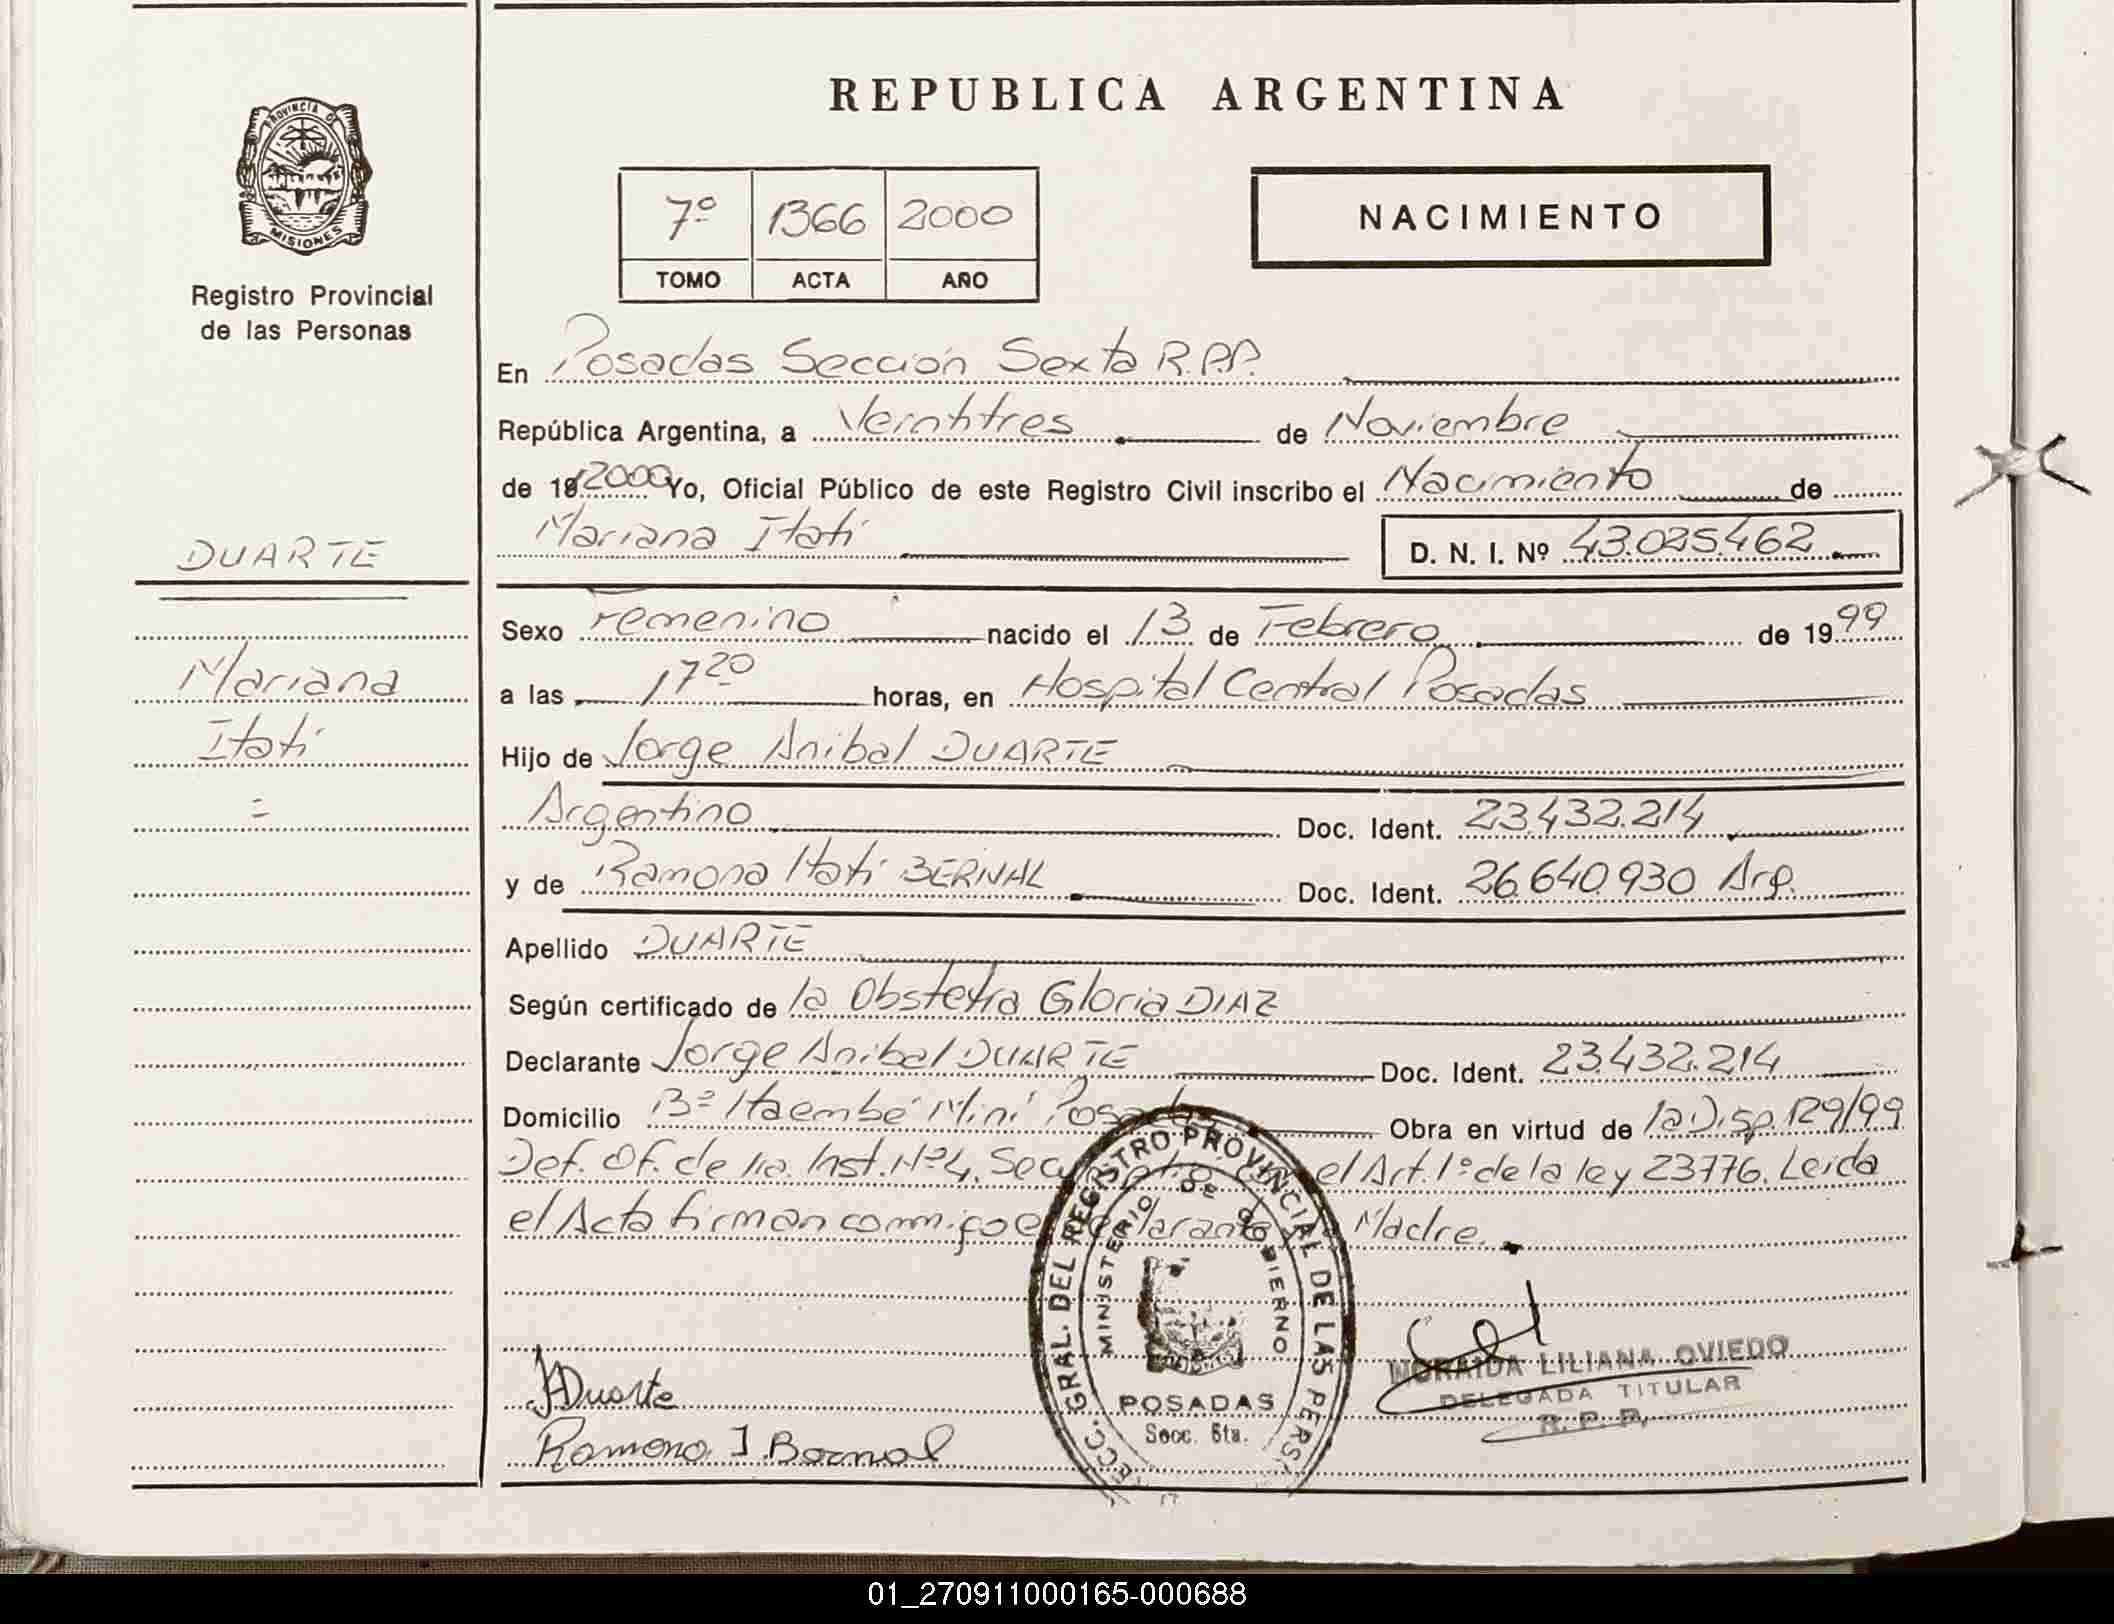 REPUBLICA ARGENTINA
PROVINCIA DE
MISIONES
Registro Provincial
de las Personas
7º 1366 2000
TOMO ACTA AÑO
NACIMIENTO
En Posadas Sección Sexta R.P.P.
República Argentina, a Veintitres de Noviembre
de 19 2000 Yo, Oficial Público de este Registro Civil inscribo el Nacimiento de
Mariana Itatí D. N. I. Nº 43.025.462
DUARTE
Mariana
Itatí
=
Sexo Femenino nacido el 13 de Febrero de 1999
a las 17 20 horas, en Hospital Central Posadas
Hijo de Jorge Anibal DUARTE
Argentino Doc. Ident. 23.432.214
y de Ramona Itatí BERNAL Doc. Ident. 26.640.930 Arg.
Apellido DUARTE
Según certificado de la Obstetra Gloria DIAZ
Declarante Jorge Anibal DUARTE Doc. Ident. 23.432.214
Domicilio Bº Itaembé Miní Posadas Obra en virtud de la Disp. 129/99
Def. Of. de 1ra. Inst. Nº 4, Sec. el Art. 1º de la ley 23776. Leida
el Acta firman conmigo el declarante Madre.
SECC. GRAL. DEL REGISTRO PROVINCIAL DE LAS PERS.
MINISTERIO DE GOBIERNO
POSADAS
Secc. 6ta.
NORAIDA LILIANA OVIEDO
DELEGADA TITULAR
R. P. P.
JADuarte
Ramona I. Bernal
01_270911000165-000688